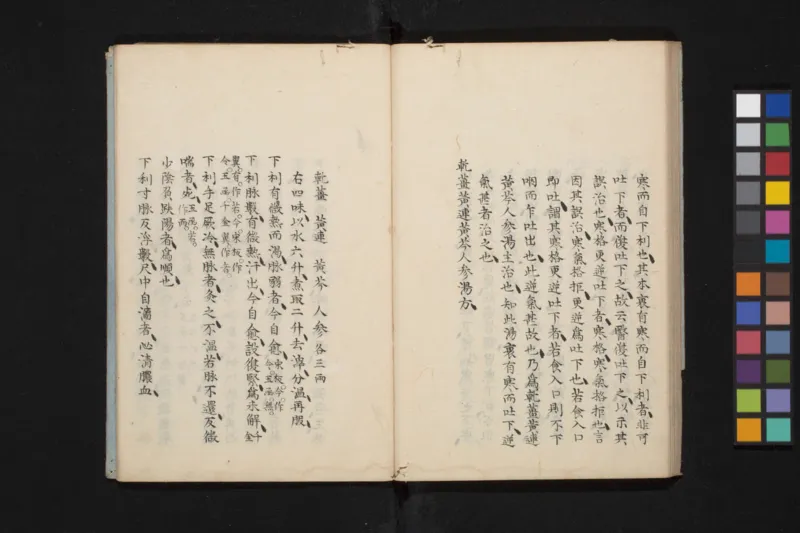 寒而自下利也其本裏有寒而自下利者非可
吐下者而復吐下之故云醫復吐下之以示其
誤治也寒格更逆吐下者寒格寒氣格拒也言
因其誤治寒氣格拒更逆爲吐下也若食入口
即吐謂其寒格更逆吐下者若食入口則不下
咽而乍吐出也此逆氣甚故也乃爲乾薑黃連
黃芩人參湯主治也知此湯裏有寒而吐下逆
氣甚者治之也
乾薑黃連黃芩人參湯方
乾薑 黃連 黃芩 人參各三兩
右四味以水六升煮取二升去滓分溫再服
下利有微熱而渴脉弱者今自愈
下利脉數有微熱汗出今自愈設復緊爲未解
下利手足厥冷無脉者灸之不溫若脉不還反微
喘者死
少陰負趺陽者爲順也
下利寸脉反浮數尺中自濇者必淸膿血